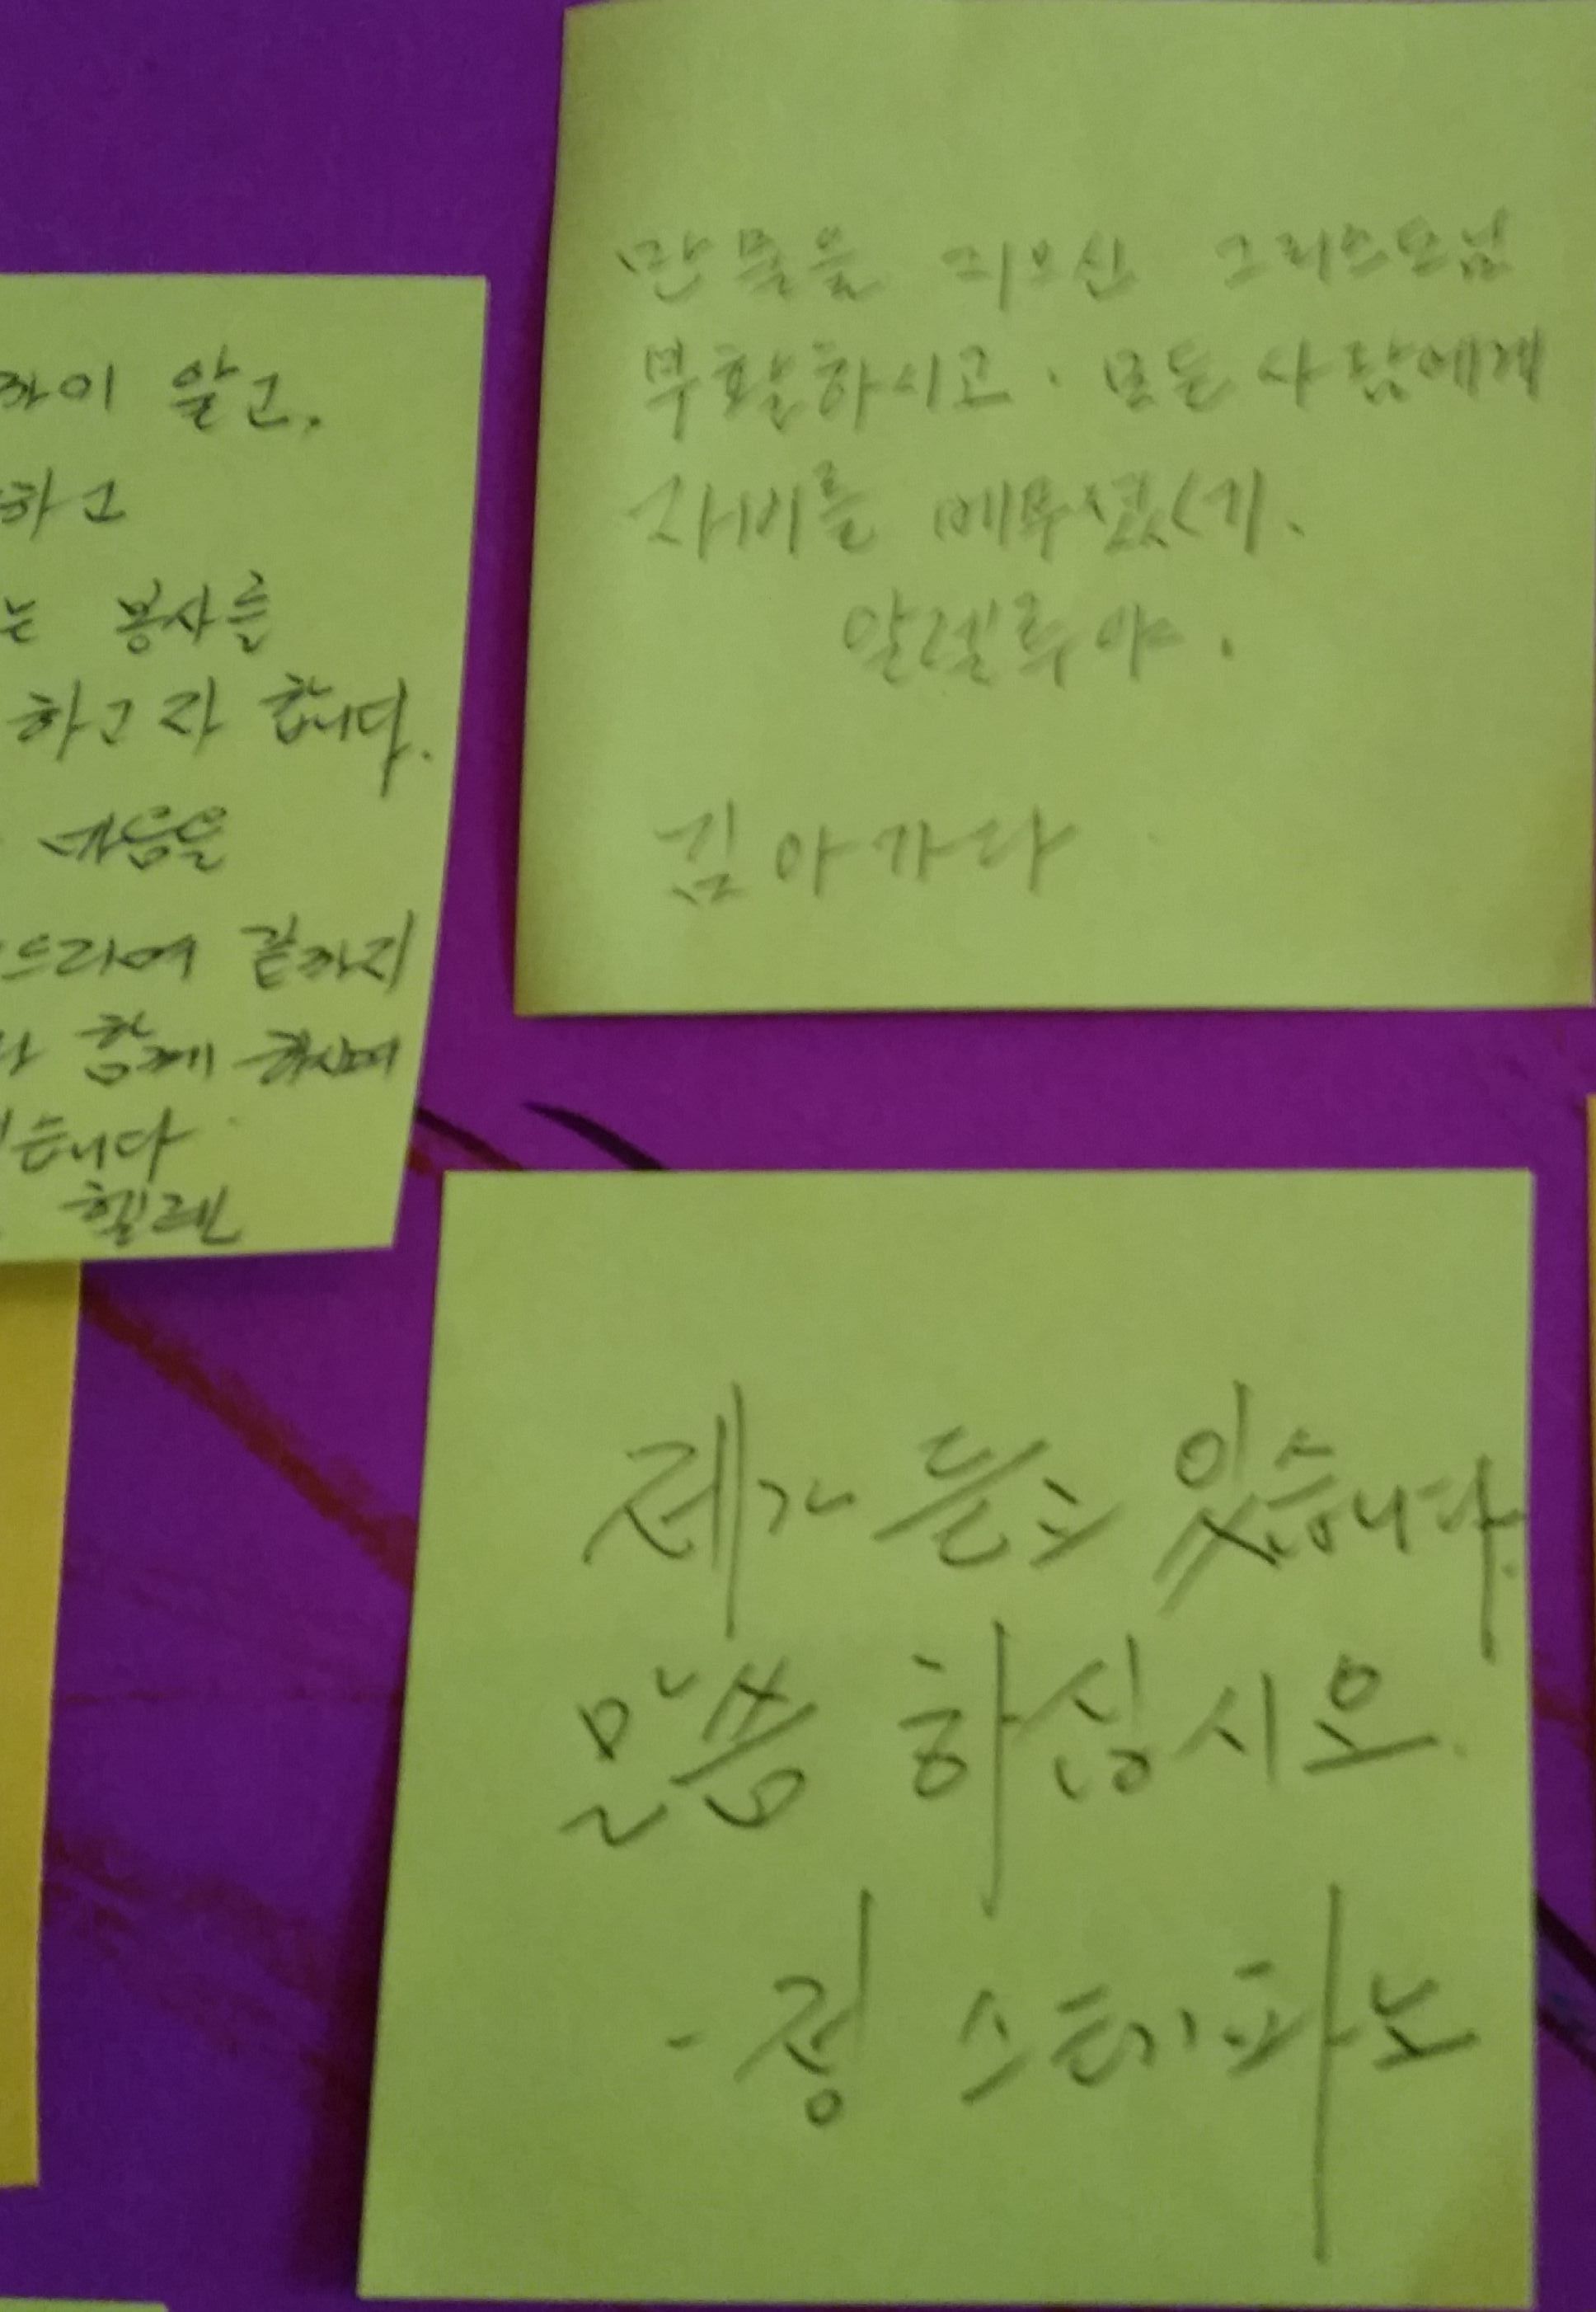 알고,
하고
는 봉사를
하고자 합니다.
마음을
드리며 끝까지
함께 하시며
습니다
헬렌
만물을 지으신 그리스도님
부활하시고. 모든 사람에게
자비를 베푸셨네.
알렐루야.
김아가다
제가 듣고 있습니다.
말씀 하십시오.
- 정 스테파노